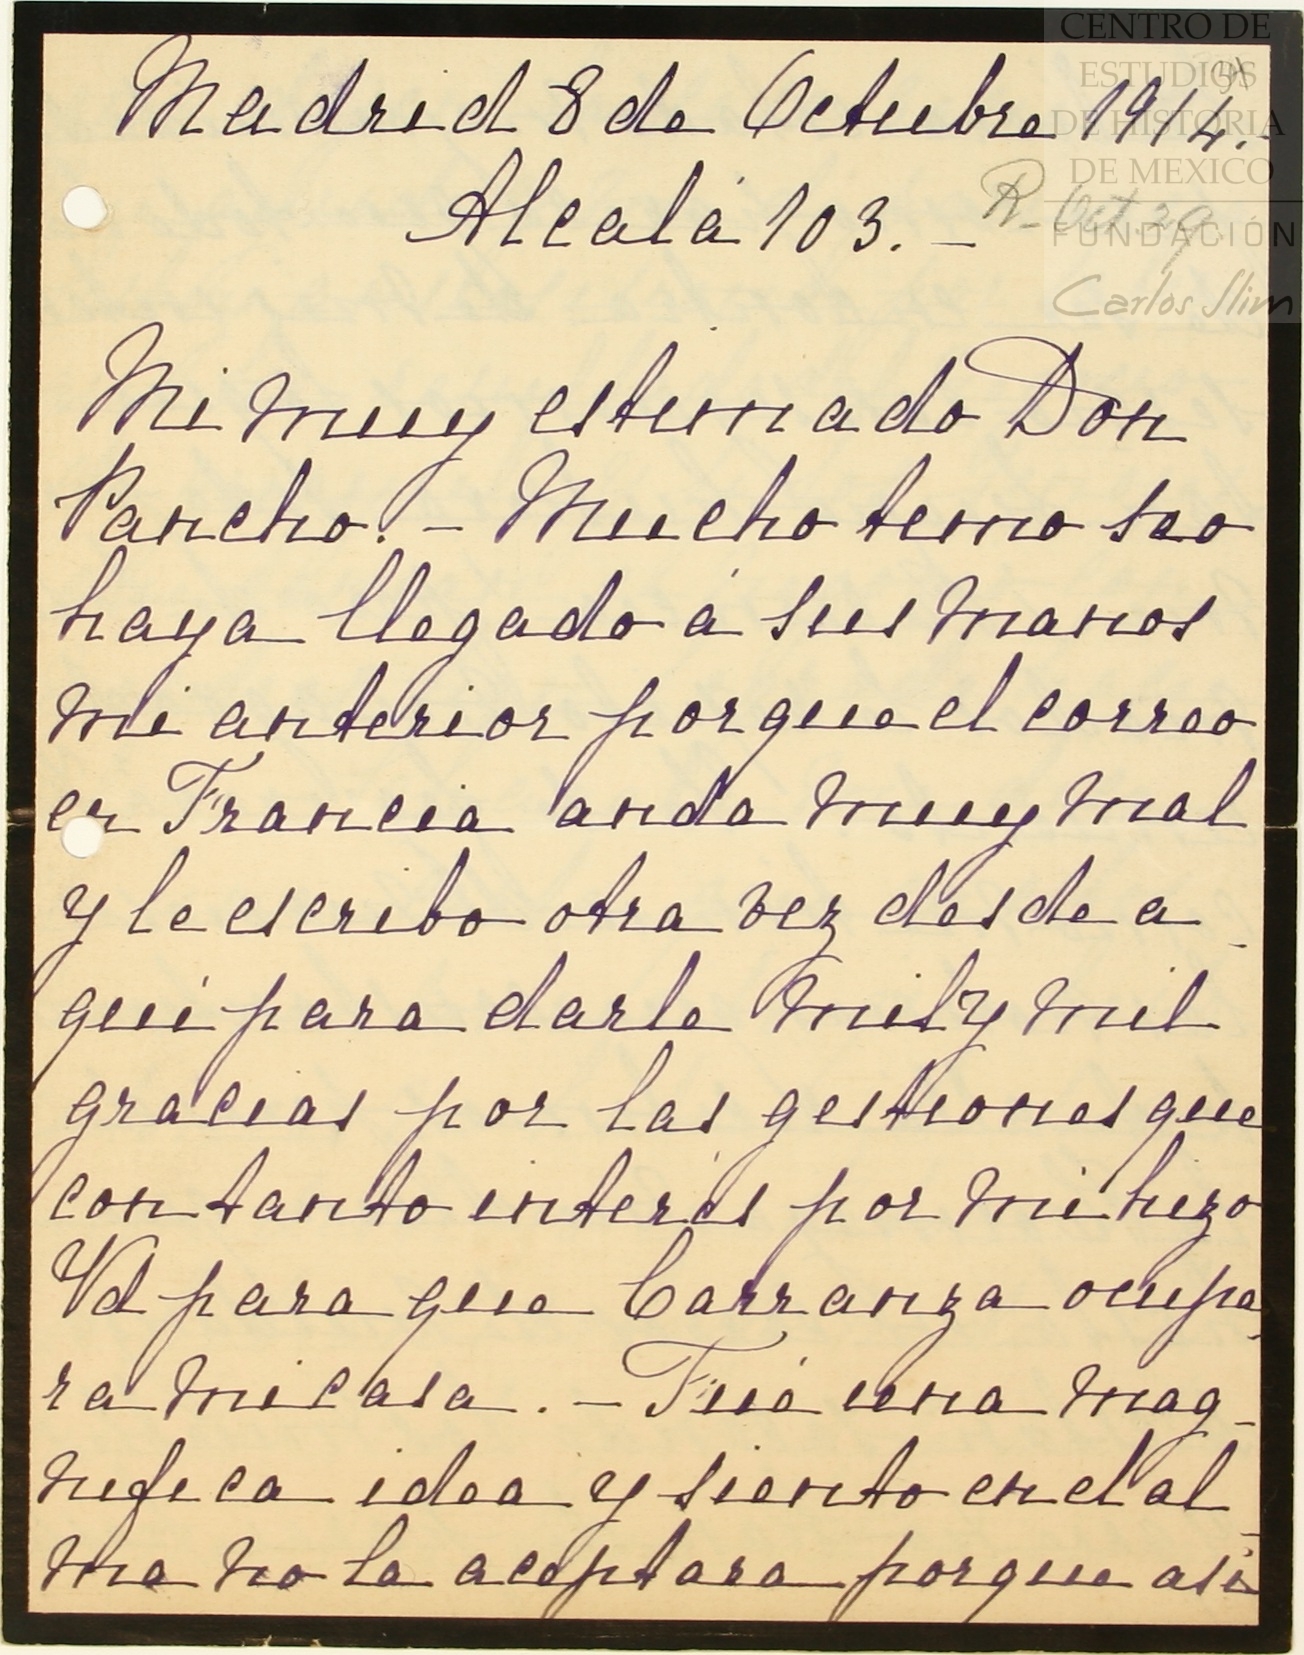 CENTRO DE
ESTUDIOS
DE HISTORIA
DE MEXICO
FUNDACIÓN
Carlos Slim
Madrid 8 de Octubre 1914.-
Alcalá 103. -
R- Oct. 29.
Mi muy estimado Don
Pancho. - Mucho temo
haya llegado á sus manos
mi anterior porque el correo
en Francia anda muy mal
y le escribo otra vez desde a-
quí para darle mil y mil
gracias por las gestiones que
con tanto interés por mi hizo
Vd para que Carranza ocupa-
ra mi casa. - Fué una mag-
nifica idea y siento en el al-
ma no la aceptara porque asi